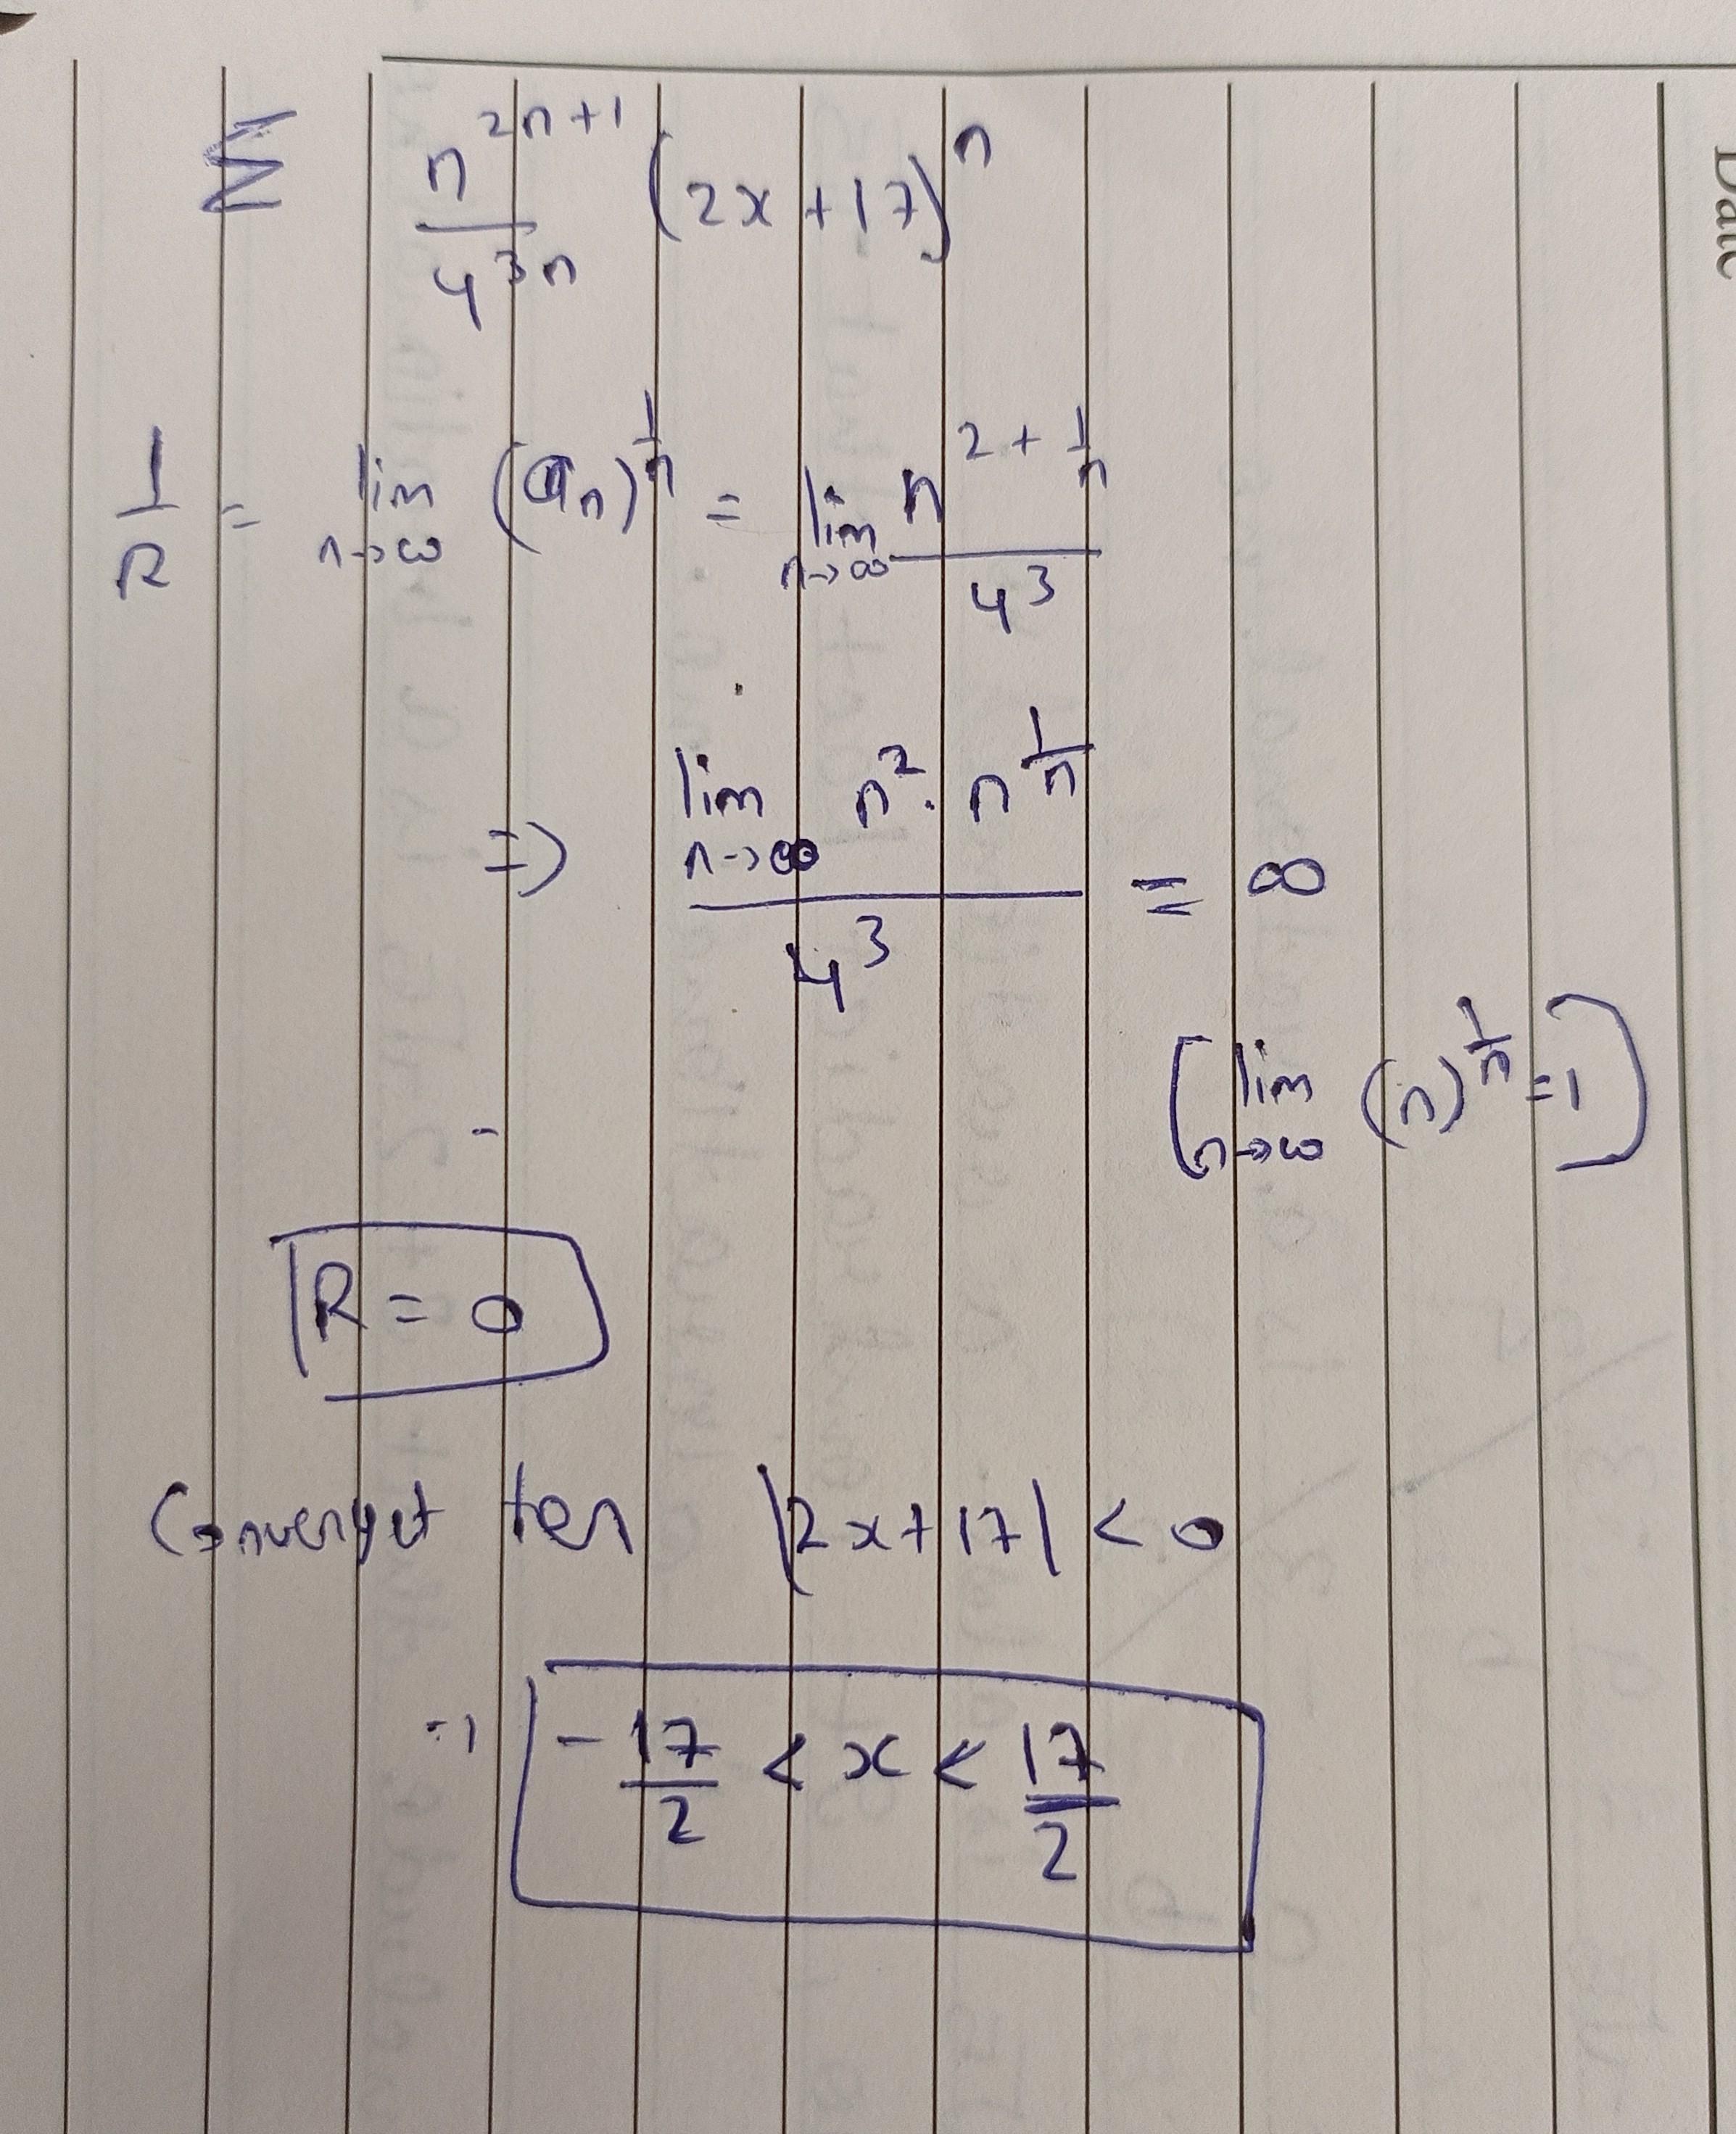 Date
∑ n^{2n+1}/4^{3n} (2x+17)^n
1/R = lim_{n→∞} (a_n)^{1/n} = lim_{n→∞} n^{2+1/n}/4^3
=> lim_{n→∞} n^2 · n^{1/n}/4^3 = ∞
[lim_{n→∞} (n)^{1/n} = 1]
R = 0
|2x+17| < 0
=> -17/2 < x < 17/2